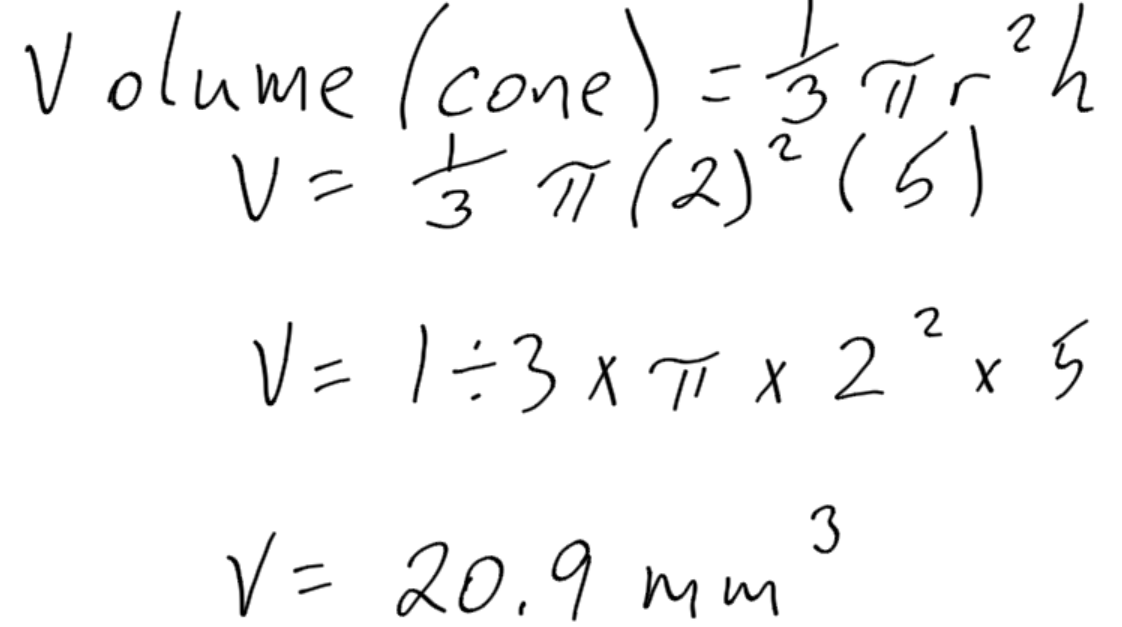 Volume (cone) = 1/3 π r² h
V = 1/3 π (2)² (5)
V = 1 ÷ 3 x π x 2² x 5
V = 20.9 mm³